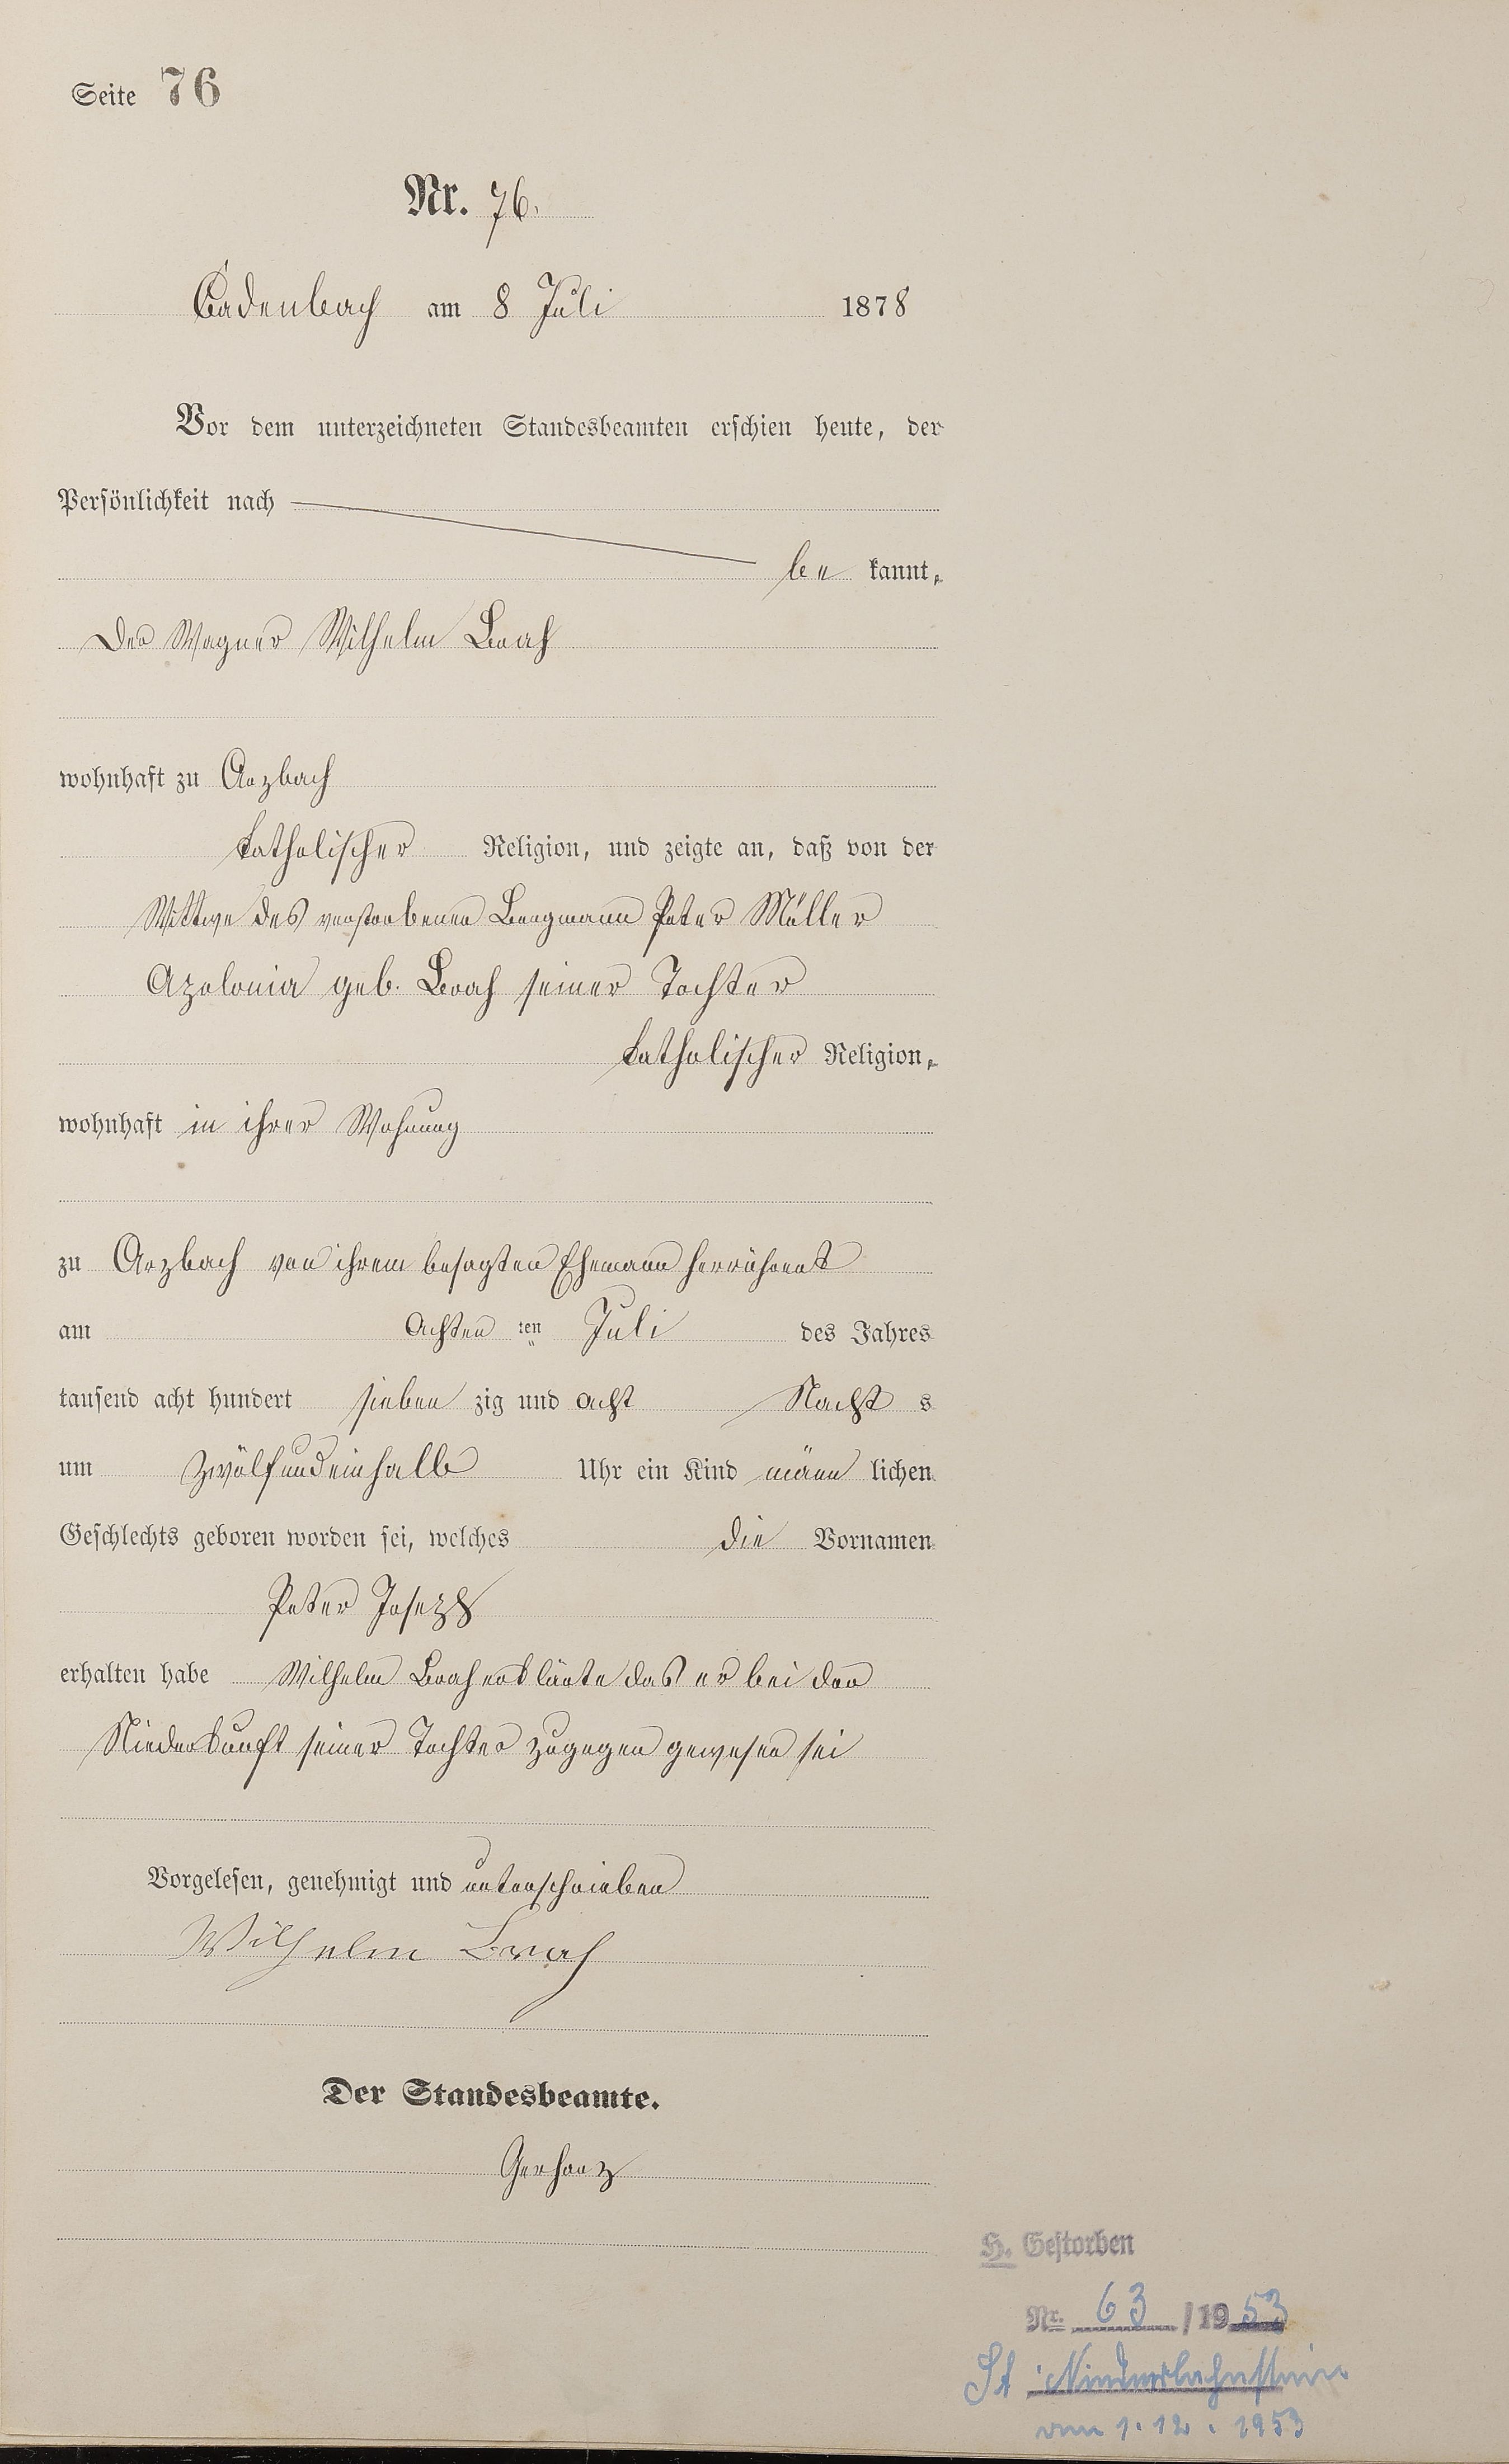 Seite 76
Nr. 76.
Cadenbach am 8 Juli 1878
Vor dem unterzeichneten Standesbeamten erschien heute, der
Persönlichkeit nach
be kannt,
Der Wagner Wilhelm Brah
wohnhaft zu Arzbach
katholischer Religion, und zeigte an, daß von der
Wittwe des verstorbenen Bergmann Peter Müller
Apolonia geb. Brah seiner Tochter
katholischer Religion,
wohnhaft in ihrer Wohnung
zu Arzbach von ihrem besagten Ehemann herrührent
am Achten ten Juli des Jahres
tausend acht hundert sieben zig und acht Nacht s
um zwölfundeinhalb Uhr ein Kind männ lichen
Geschlechts geboren worden sei, welches die Vornamen
Peter Joseph
erhalten habe Wilhelm Brah erklärte das er bei der
Niederkunft seiner Tochter zugegen gewesen sei
Vorgelesen, genehmigt und unterschrieben
Wilhelm Brah
Der Standesbeamte.
Gerharz
H. Gestorben
Nr. 63 / 1953
St. Niederlahnstein
vom 1.12.1953